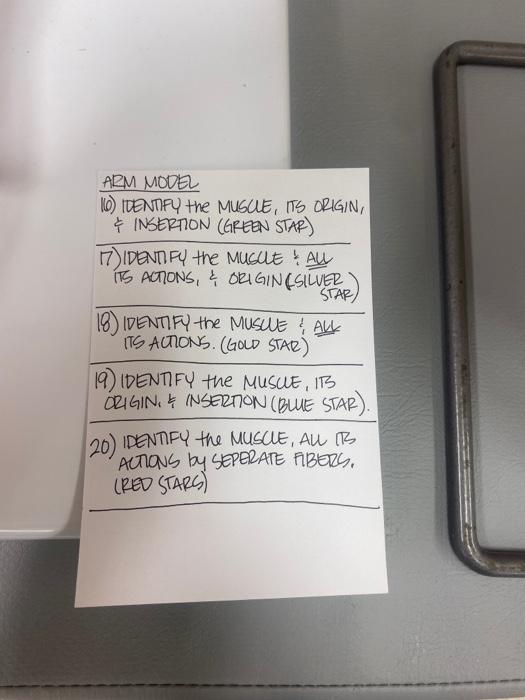 ARM MODEL
16) IDENTIFY the MUSCLE, ITS ORIGIN,
& INSERTION (GREEN STAR)
17) IDENTIFY the MUSCLE & ALL
ITS ACTIONS, & ORIGIN (SILVER
STAR)
18) IDENTIFY the MUSCLE & ALL
ITS ACTIONS. (GOLD STAR)
19) IDENTIFY the MUSCLE, ITS
ORIGIN, & INSERTION (BLUE STAR).
20) IDENTIFY the MUSCLE, ALL ITS
ACTIONS by SEPERATE FIBERS.
(RED STARS)